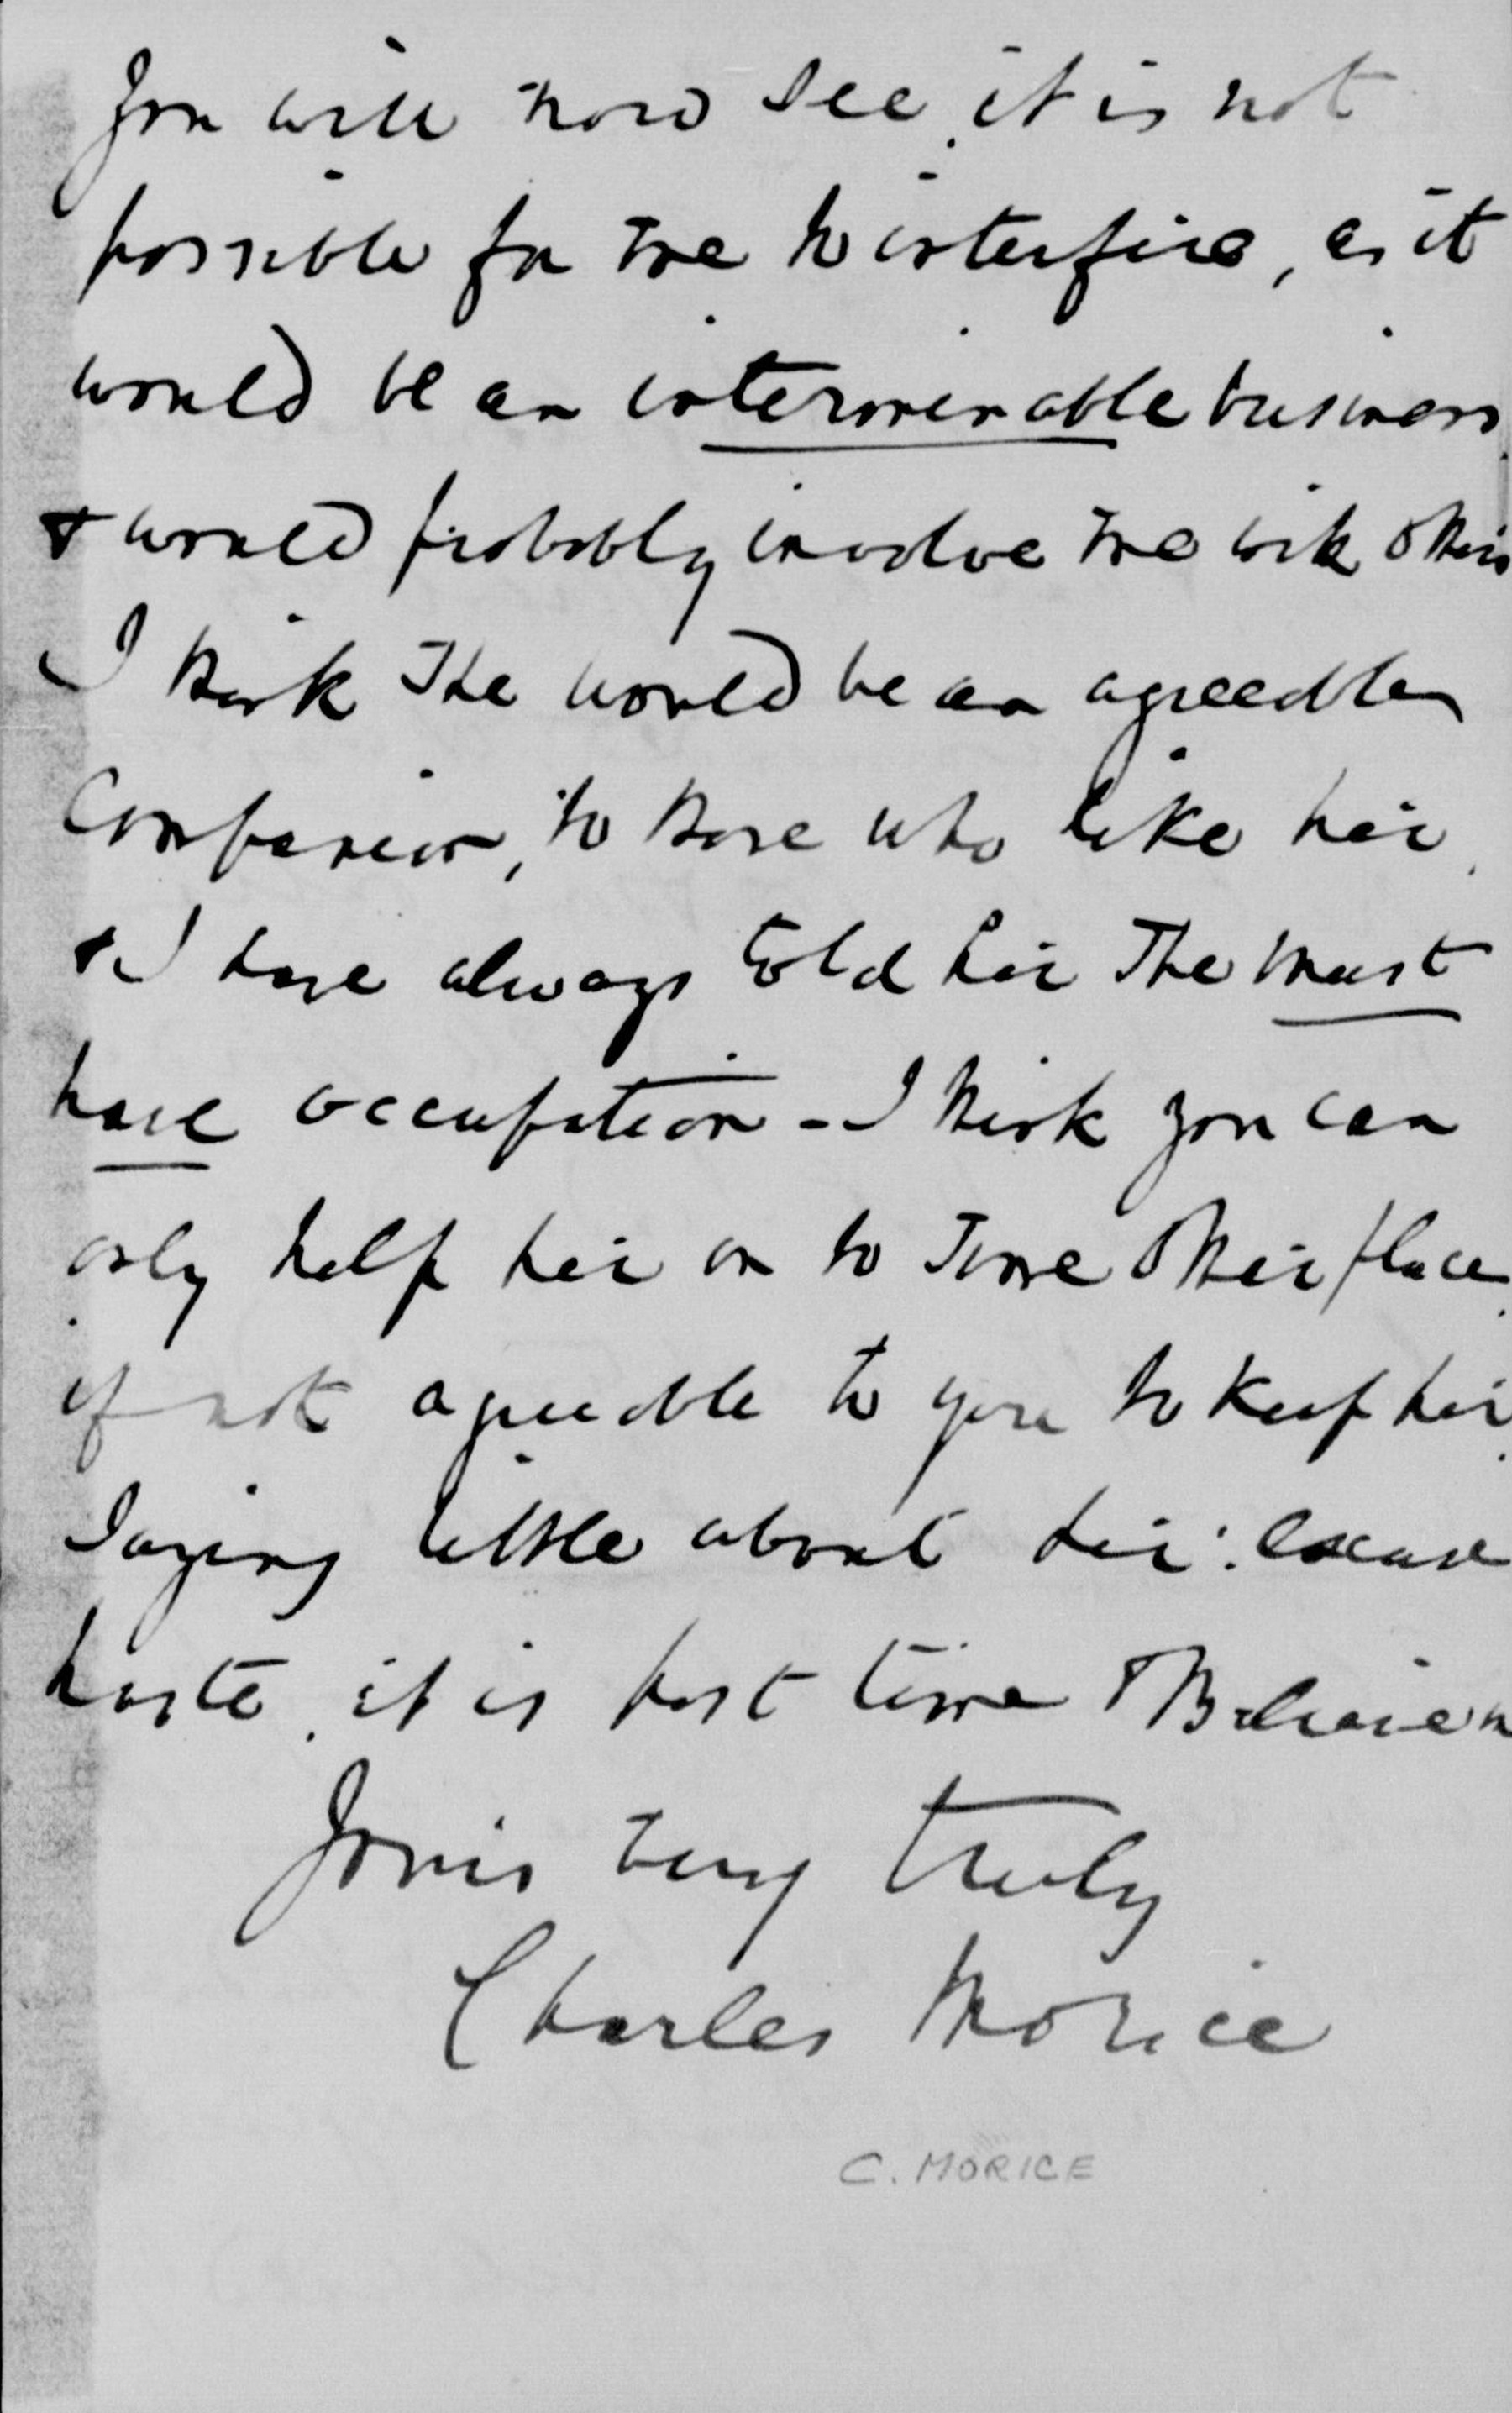 You will now see, it is not
possible for me to interfere, as it
would be an interminable business
& would probably involve me with others
I think she would be an agreeable
Companion, to those who like her,
& I have always told her she must
have occupation - I think you can
only help her on to some other place,
if not agreeable to you to keep her,
saying little about her: excuse
haste, it is post time & Believe m
Yours very truly
Charles Morice
C. MORICE